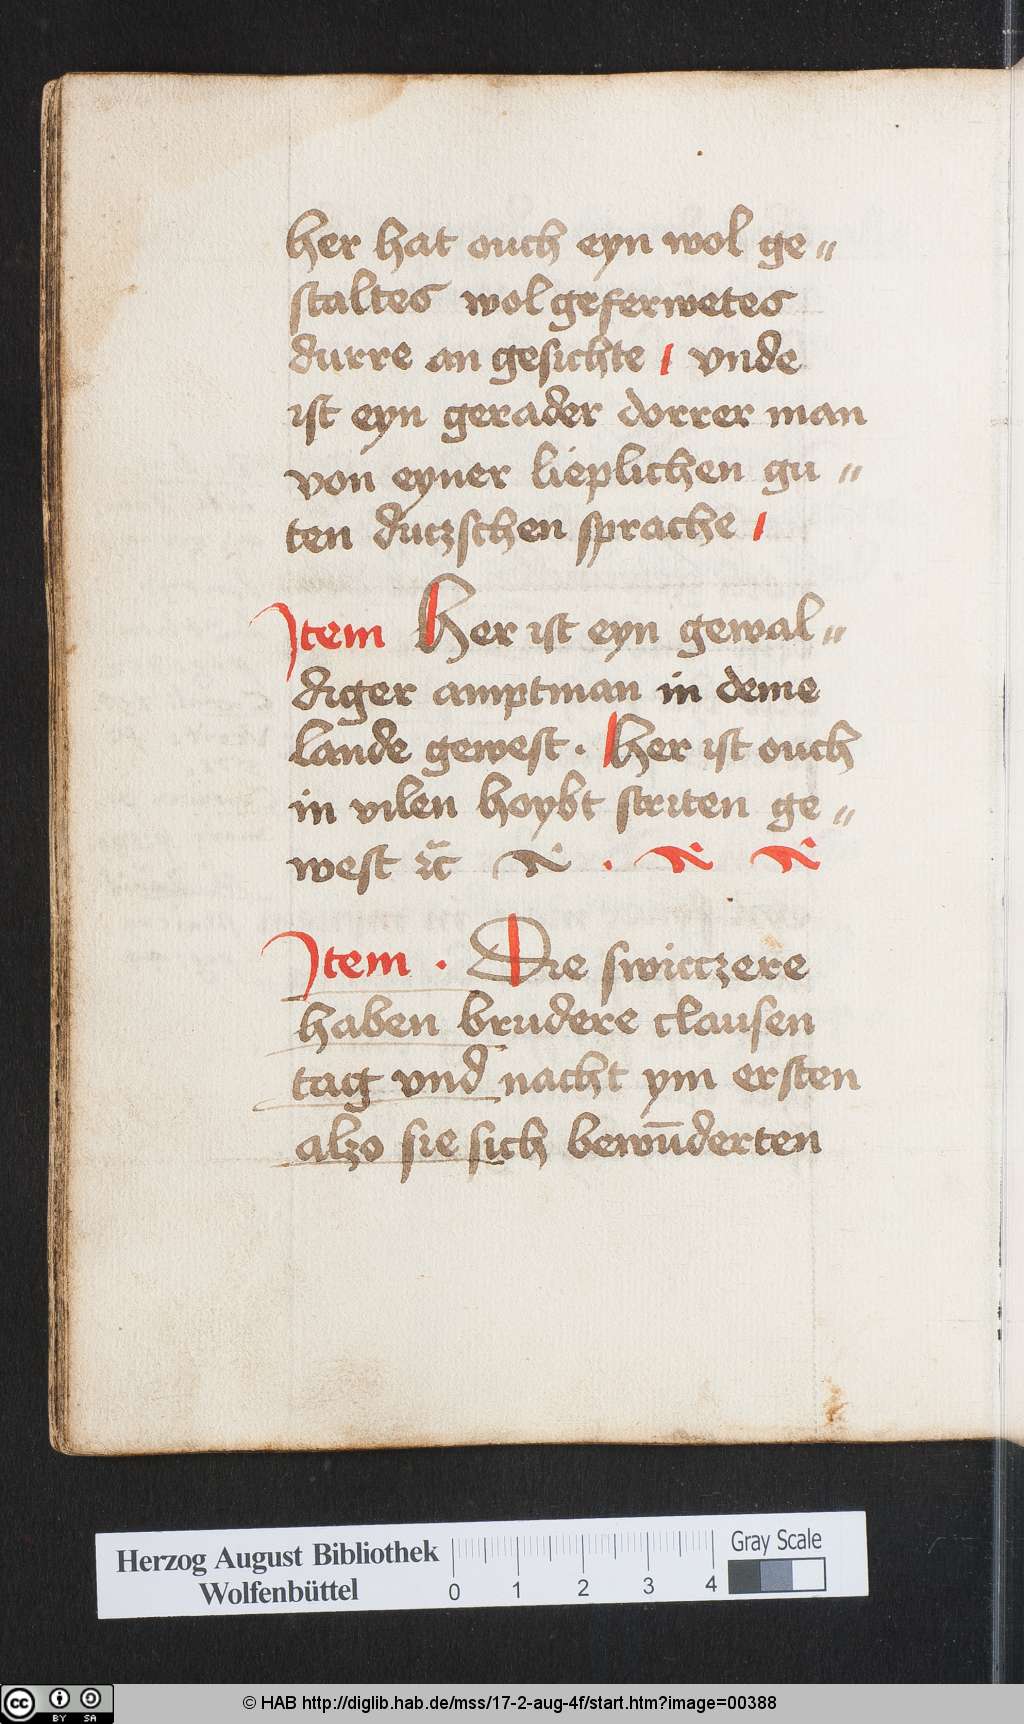 her hat ouch eyn wol ge⸗
staltes wol geferwetes
durre an gesichte / vnde
ist eyn gerader dorrer man
von eyner lieplichen gu⸗
ten dutzschen sprache /
Item Her ist eyn gewal⸗
diger amptman in deme
lande gewest · Her ist ouch
in vilen hoybt striten ge⸗
west ꝛc̄
Item · Die swiczere
haben brudere clausen
tag vnd nacht ym ersten
alzo sie sich bewūderten
Herzog August Bibliothek
Wolfenbüttel
0 1 2 3 4
Gray Scale
cc BY SA
© HAB http://diglib.hab.de/mss/17-2-aug-4f/start.htm?image=00388